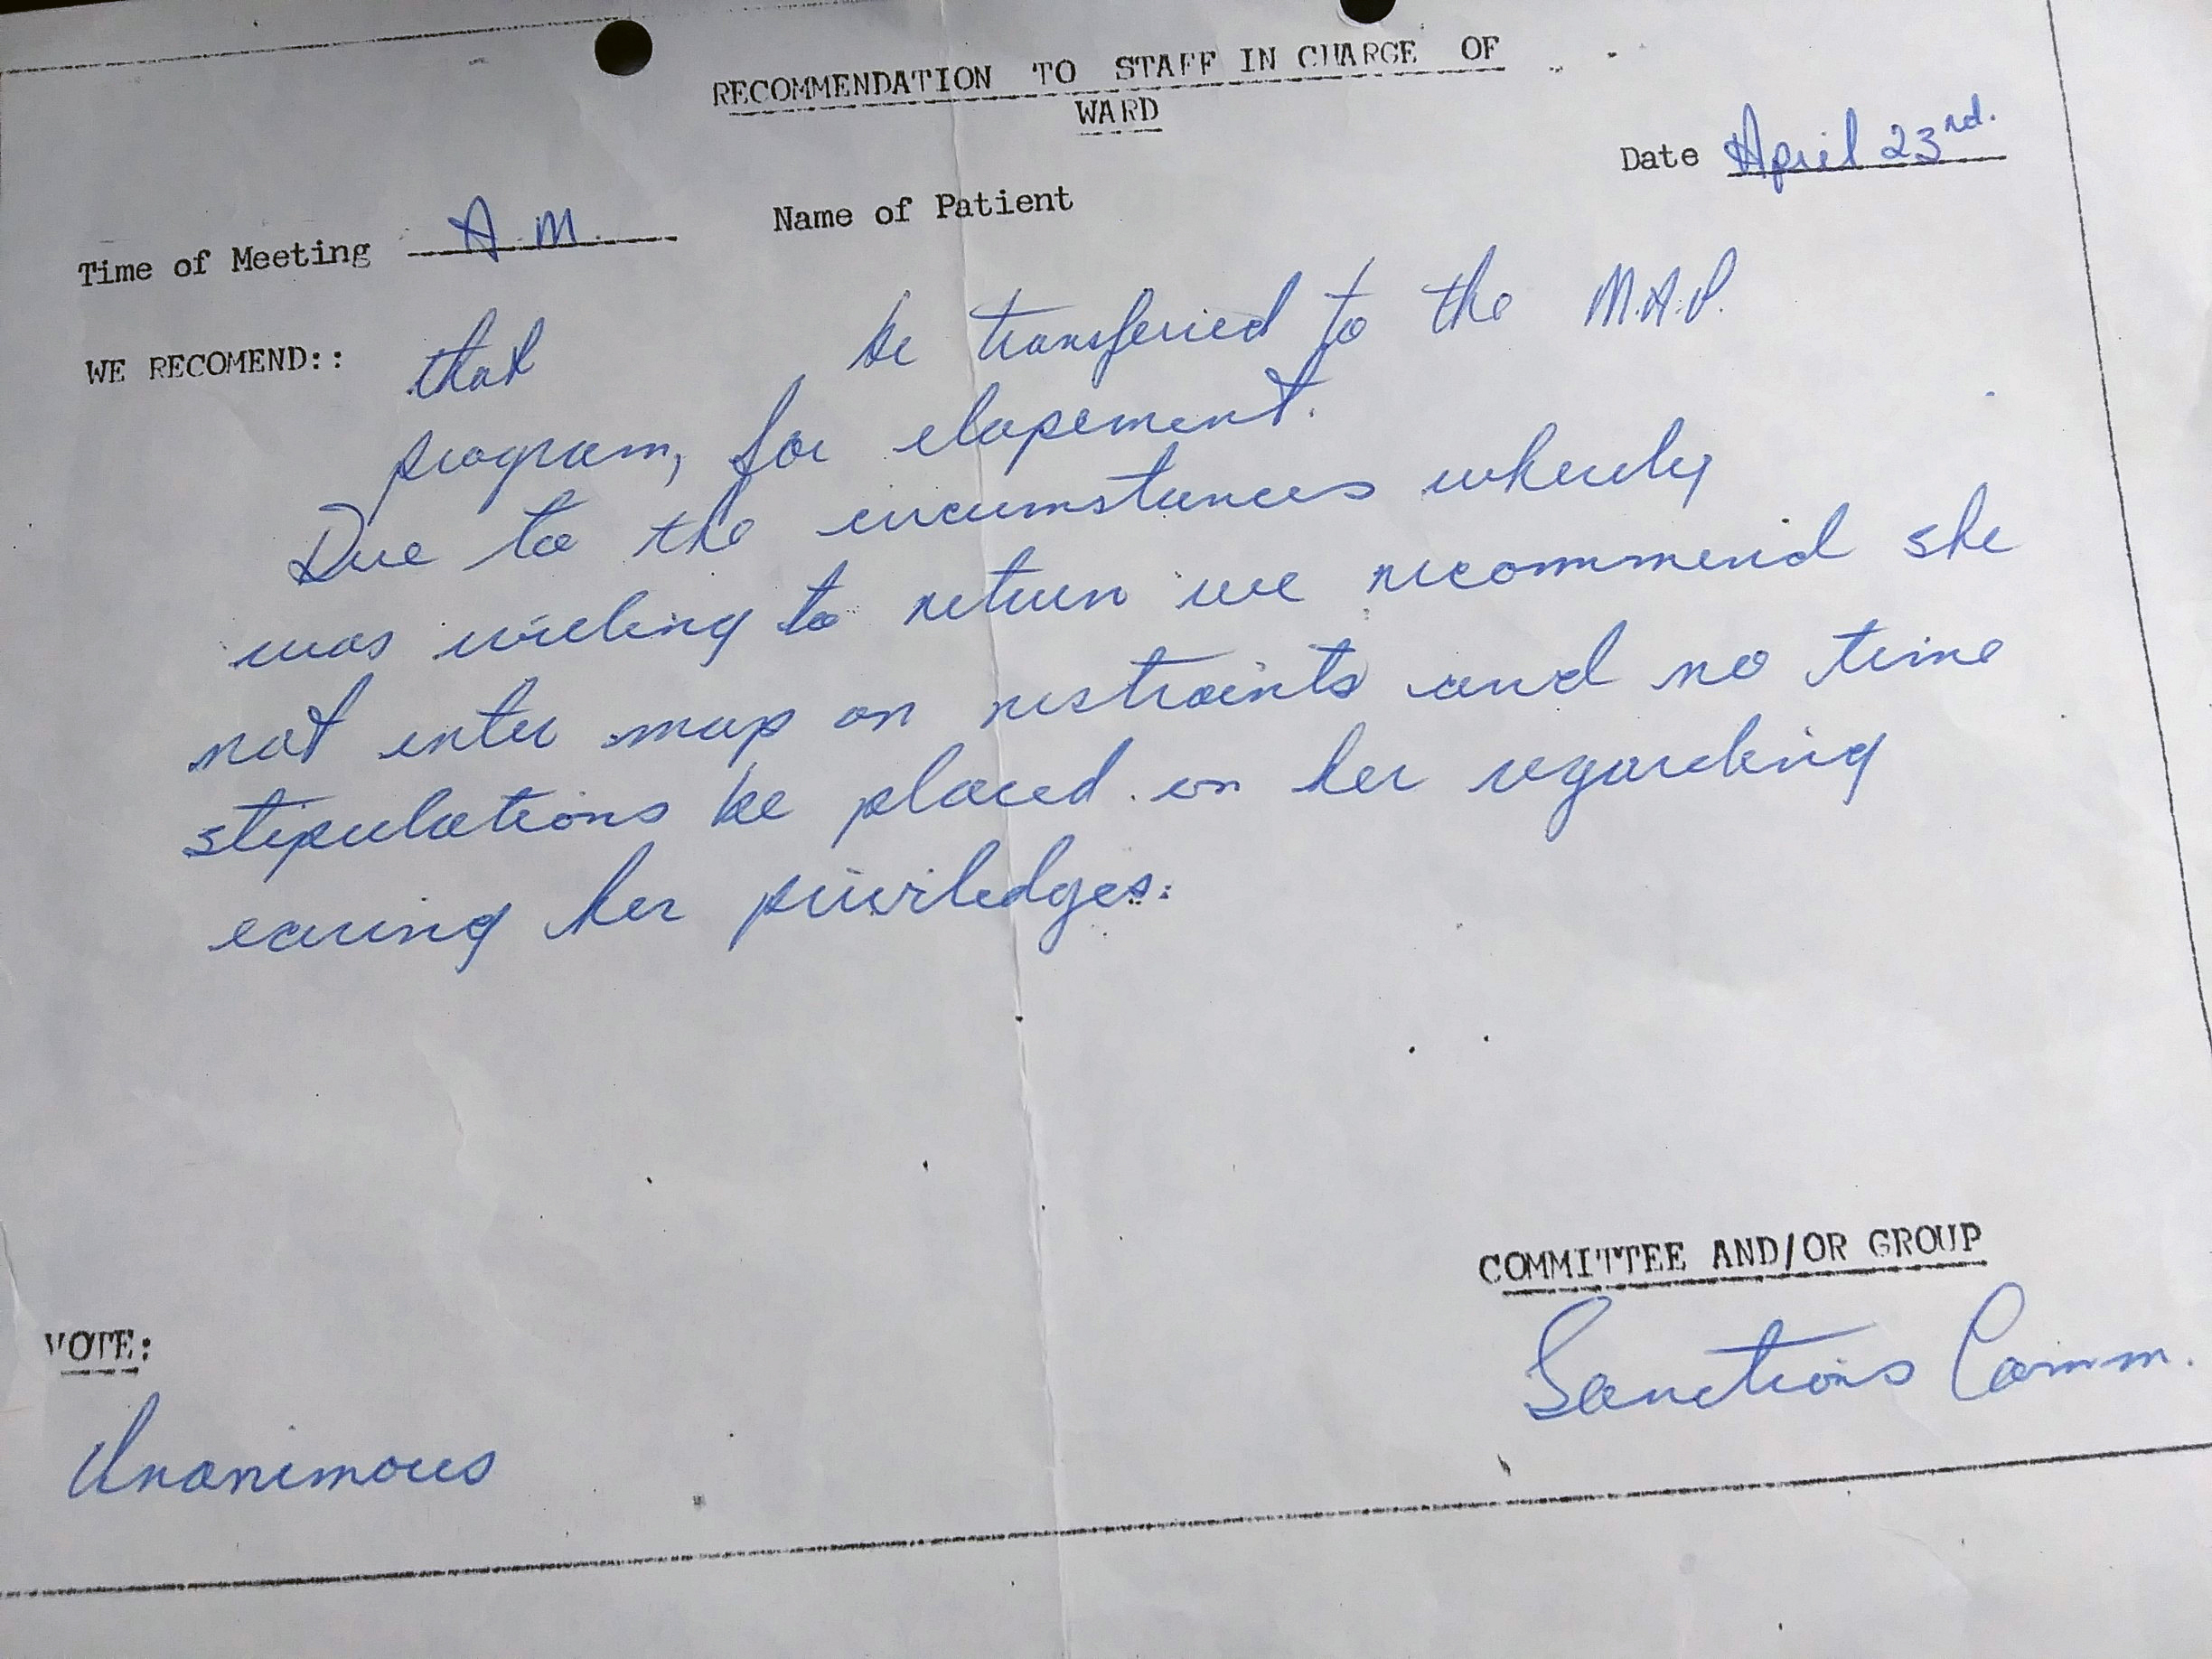 RECOMMENDATION TO STAFF IN CHARGE OF
WARD
Date April 23rd.
Time of Meeting A.M. Name of Patient
WE RECOMEND:: that be transferred to the M.A.P.
program, for elopement.
Due to the circumstances whereby
was willing to return we recommend she
not enter map on restraints and no time
stipulations be placed on her regarding
earing her priviledges.
COMMITTEE AND/OR GROUP
Sanctions Comm.
VOTE:
Unanimous